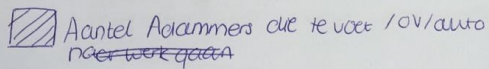 Aantel Adammers die te voet /OV/auto
naer werk gaan